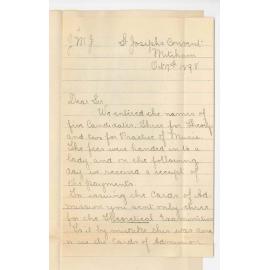 J.M.J. St Joseph's Convent
Mitcham
Oct 7th 1898
Dear Sir,
We entered the names of
five Candidates, three for Theory
and two for Practice of Music.
The fees were handed in to a
lady and on the following
day we received a receipt of
the payments.
In issuing the Cards of Ad
mission you sent only three
for the Theoretical Examination
Is it by mistake this was done
in the Cards of Admission